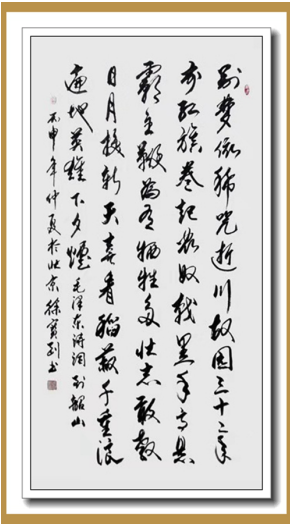 别梦依稀咒逝川故园三十二年
前红旗卷起农奴戟黑手高悬
霸主鞭为有牺牲多壮志敢教
日月换新天喜看稻菽千重浪
遍地英雄下夕烟 毛泽东诗词到韶山
丙申年仲夏于北京徐宝书